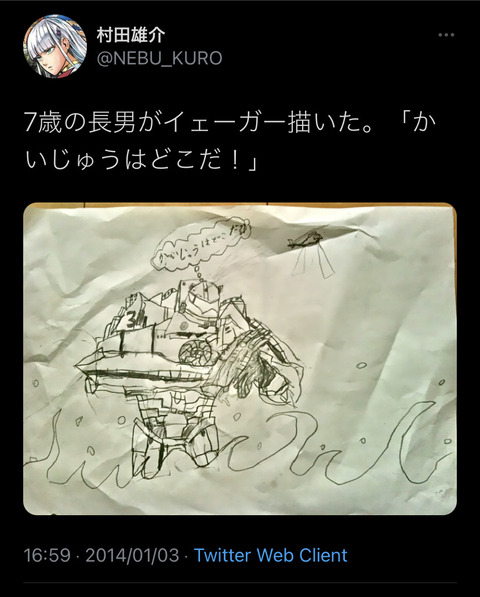 村田雄介
@NEBU_KURO
7歳の長男がイェーガー描いた。「か
いじゅうはどこだ！」
かいじゅうはどこだ!!
34
16:59 · 2014/01/03 · Twitter Web Client